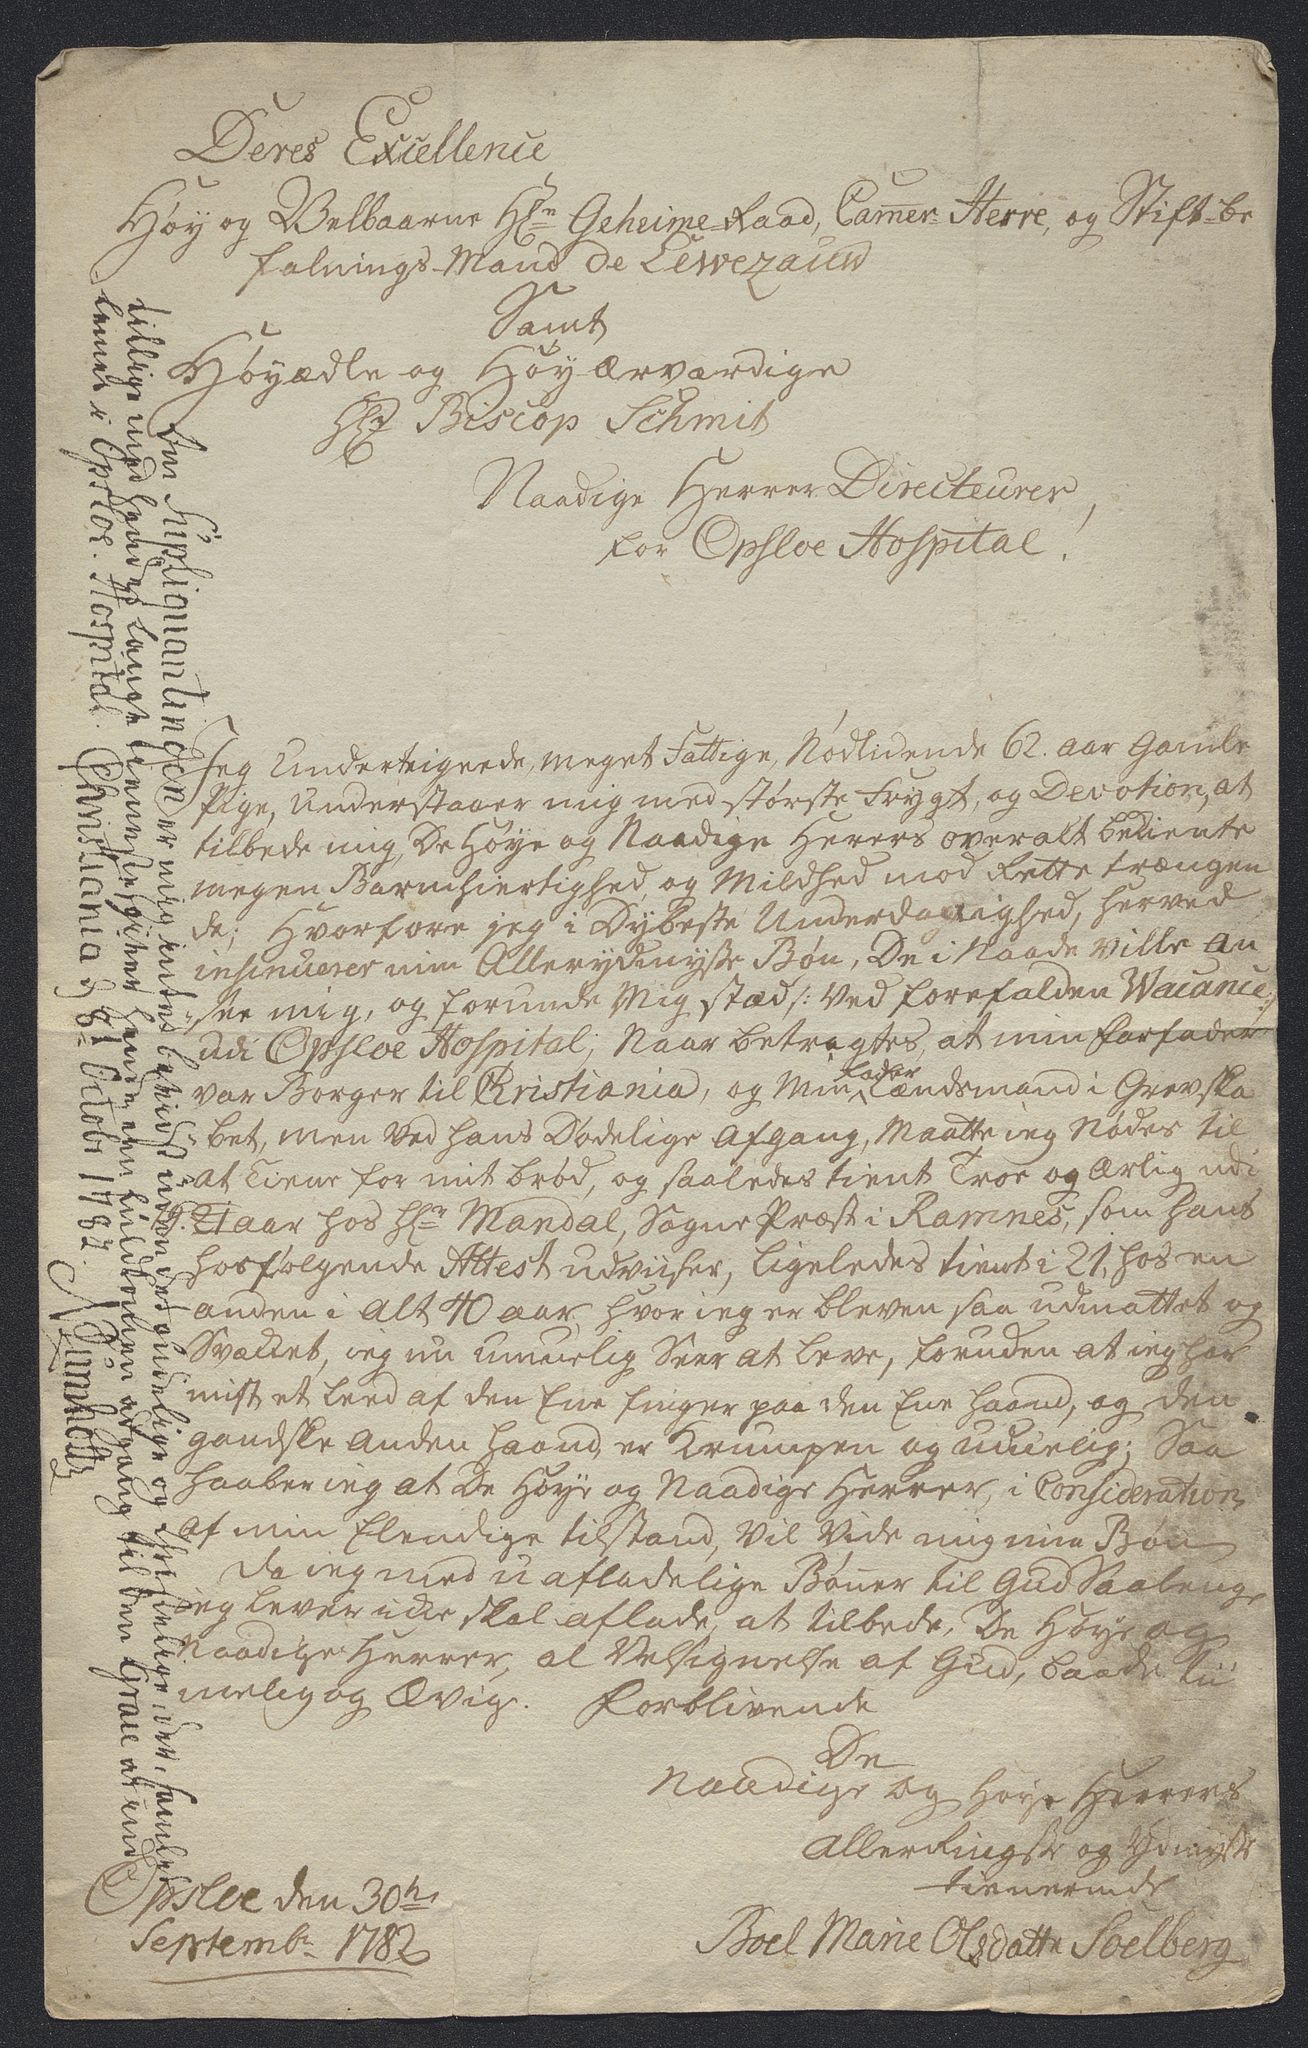 Deres Excellence
Høy og Velbaarne Hrn Geheime-Raad, Camer-Herre, og Stift-be
falnings-Mand de Lewezauw
Samt
Høyædle og Høyærværdige
Hr Biscop Schmit
Naadige Herrer Directeurer,
for Opsloe Hospital!
Jeg Underteignede, meget Fattige, Nødlidende 62. aar Gamle
Pige, Understaaer mig med største Frygt, og Devotion, at
tilbede mig, De Høye og Naadige Herrers overalt bekiente
megen Barmhiertighed, og Mildhed mod Rette trængen
de; Hvorfore jeg i Dybeste Underdanighed, herved
insinuerer min Allerydmyste Bøn, De i Naade Ville an
see mig, og forunde Mig stæd /: Ved forefalden Wacance :/
udi Opsloe Hospital; Naar betragtes, at min farfader
var Borger til Kristiania, og Min fader Lændsmand i Grevska
bet, men Ved hans Dødelige Afgang, Maatte ieg Nødes til
at tiene for mit brød, og saaledes tient Troe og Ærlig udi
19. aar hos Hrn Mandal, Sogne Præst i Ramnes, som hans
hosfølgende Attest udviiser, ligeledes tient i 21, hos en
anden i alt 40 aar, hvor ieg er bleven saa udmattet og
Svækket, ieg nu umuelig Seer at leve, foruden at ieg har
mist et leed af den Ene finger paa den Ene haand, og den
gandske anden haand, er Krumpen og uduelig; Saa
haaber ieg at De Høye og Naadige Herrer, i Consideration
af min Elendige tilstand, Vil Vide mig min Bøn
da ieg med uafladelige Bønner til Gud Saalenge
ieg lever icke skal aflade, at tilbede, De Høye og
Naadige Herrer, al Velsignelse af Gud, baade tii
melig og Ævig. Forblivende
De
Naadige og Høye Herrers
allerRingste og Ydmyste
tienerinde
Boel Marie Olsdatter Soelberg
Opsloe den 30th
Septembr 1782
Den Supliqvantinden er mig intet bekiendt uden det ædelige og christelige, der, samlet
tillige med hendes lange tieneste giver hende en fuldkomen adgang til den Grace at ind
lemes i Opsloe Hospital. Christiania d 8de Octobr 1782.